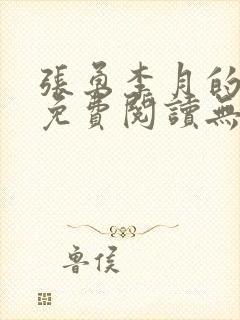 張勇李月的
免費閱讀無
魯侯